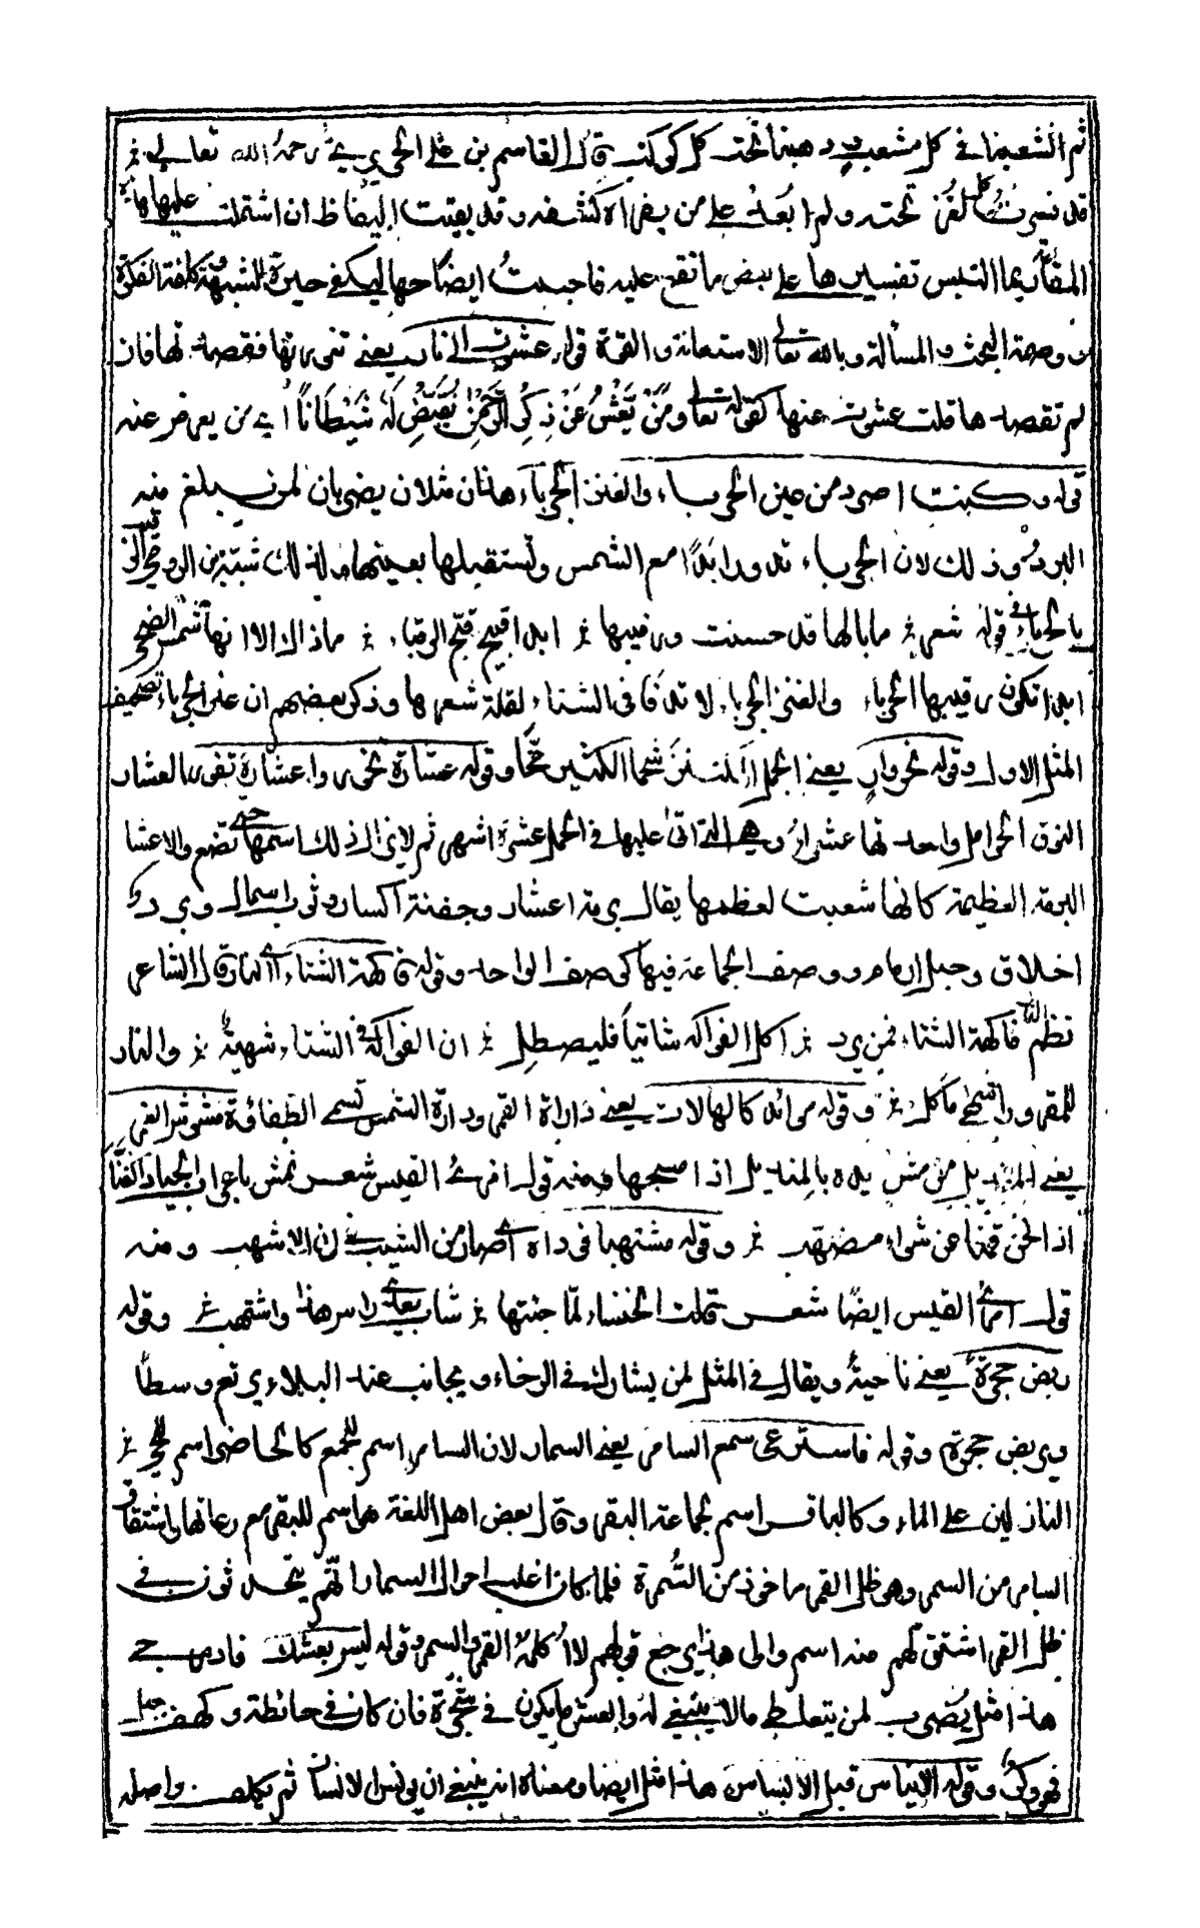 ثم انشعبنا في كل مشعب وذهبنا تحت كل كوكب قال القاسم بن علي الحريري رحمه الله تعالى
قد فسرت كل لغز تحته ولم ابعد على من يقراه كشفه وقد بقيت اليفاظ ان اشتملت عليها هذه
المقامة ربما التبس تفسيرها على بعض ما تقع عليه فاحببت ايضاحها ليكفي حيرة الشبهة وكلفة الفكرة
ووصمة البحث والمسألة وبالله تعالى الاستعانة والقوة قوله عشوت الى نار يعني تنورتها فقصدتها فان
لم تقصدها قلت عشوت عنها كقوله تعالى ومن يعش عن ذكر الرحمن نقيض له شيطانا اي من يعرض عنه
قوله وكنت اصرد من عين الحرباء والعنز الجرباء هذان مثلان يضربان لمن يبلغ منه
البرد وذلك لان الحرباء تدور ابدا مع الشمس وتستقبلها بعينها ولذلك شبه ابن الرومي الرقيب
بالحرباء في قوله شعر ما بالها قد حسنت ورقيبها ابدا قبيح قبح الرقباء ما ذاك الا انها شمس الضحى
ابدا تكون رقيبها الحرباء والعنز الجرباء لا تدفا في الشتاء لقلة شعرها وذكر بعضهم ان عنز الجرباء تصحيف
المثل الاول وقوله نحر وار يعني الجمل المكتنز شحما الكثير مخا وقوله عشارة تخور واعشاره تفور العشار
النوق الحوامل واحدتها عشراء وهي التي اتى عليها في الحمل عشرة اشهر ثم لايزال ذلك اسمها حتى تضع والاعشار
البرمة العظيمة كانها شعبت لعظمها يقال برمة اعشار وجفنة اكسار وثوب اسمال وبرد
اخلاق وحبل ارمام ووصف الجماعة فيها كوصف الواحد وقوله فاكهة الشتاء اي النار قال الشاعر
نظم النار فاكهة الشتاء فمن يرد اكل الفواكه شاتيا فليصطلي ان الفواكه في الشتاء شهية والنار
للمقرور اشهى ماكل وقوله موائد كالهالات يعني دارات القمر ودارة الشمس تسمى الطفاوة مشوش الغمر
يعني المنديل من مش يده بالمنديل اذا مسحها ومنه قول امرئ القيس شعر نمش باعراف الجياد اكفنا
اذا نحن قمنا عن شواء مضهب وقوله مشتهبا فوداه اي صار من الشيب في لون الاشهب ومنه
قول امرئ القيس ايضا شعر قالت الخنساء لما جئتها شاب بعدي راس هذا واشتهب وقوله
ربض حجرة يعني ناحية ويقال في المثل لمن يشارك في الرخاء ويجانب عند البلاء يرتع وسطا
ويربض حجرة وقوله فاسترعى سمع السامر يعني السمار لان السامر اسم للجمع كالحاضر اسم للحي
النازلين على الماء وكالباقر اسم لجماعة البقر وقال بعض اهل اللغة هو اسم للبقر مع رعاتها واشتقاق
السامر من السمر وهو ظل القمر ماخوذ من السمرة فلما كان اغلب احوال السمار انهم يتحدثون في
ظل القمر اشتق لهم منه اسم والى هذا يرجع قولهم لا اكلمه القمر والسمر وقوله ليس بعشك فادرجي
هذا مثل يضرب لمن يتعاطى ما لا ينبغي له والعش ما يكون في شجرة فان كان في حائط او كهف جبل
فهو وكر وقوله الايناس قبل الابساس هذا مثل ايضا ومعناه انه ينبغي ان يونس الانسان ثم يكلف واصله